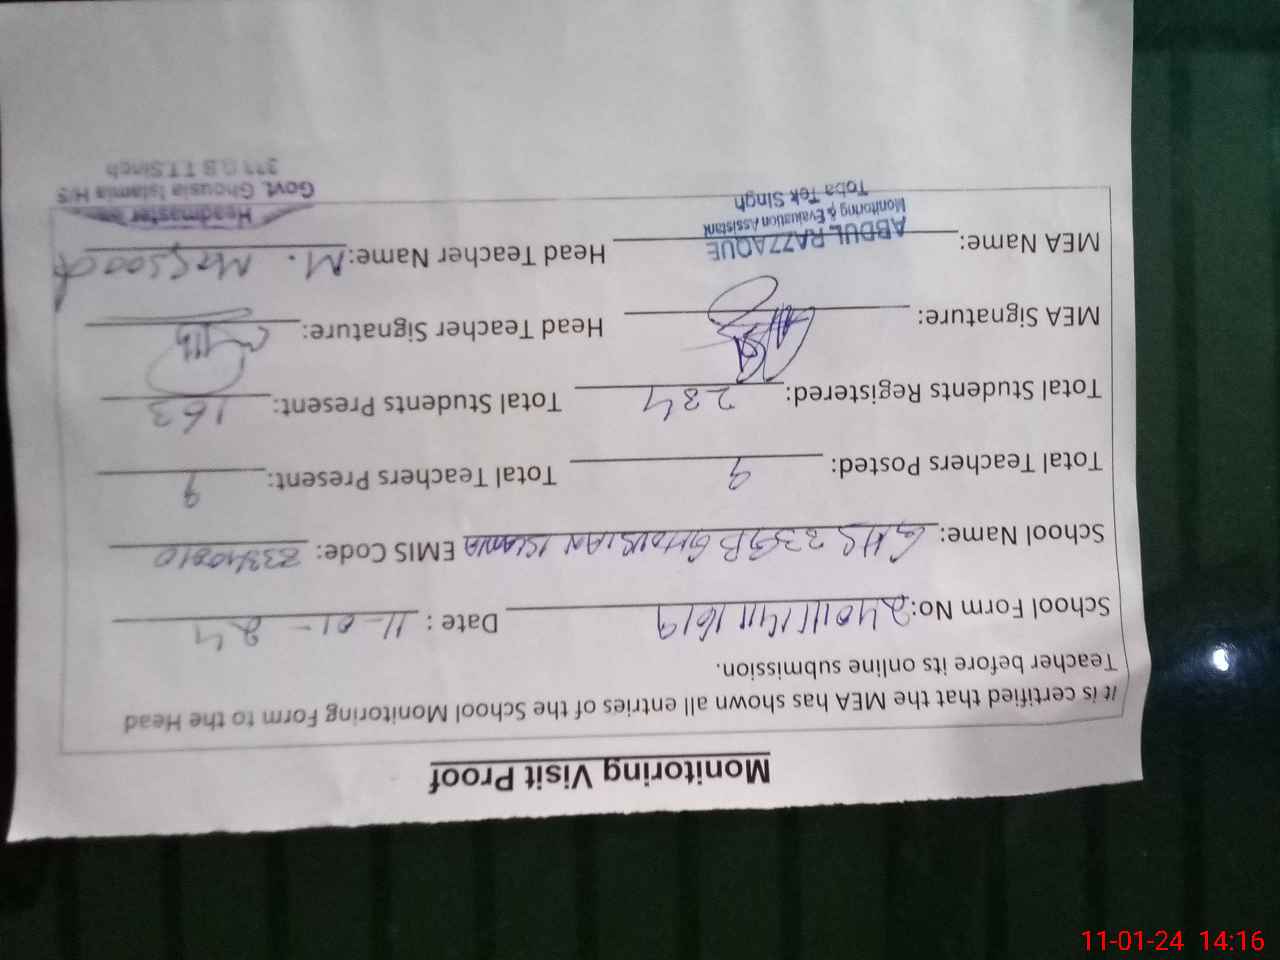 Monitoring Visit Proof
It is certified that the MEA has shown all entries of the School Monitoring Form to the Head
Teacher before its online submission.
School Form No: Date : 11-01-24
School Name: GHS EMIS Code:
Total Teachers Posted: 9 Total Teachers Present: 9
Total Students Registered: 234 Total Students Present: 163
MEA Signature: Head Teacher Signature:
MEA Name: ABDUL RAZZAQUE Head Teacher Name: M. Maqsood
Monitoring & Evaluation Assistant
Toba Tek Singh
Headmaster
Govt. Ghousia Islamia H/S
T.T.Singh
11-01-24 14:16